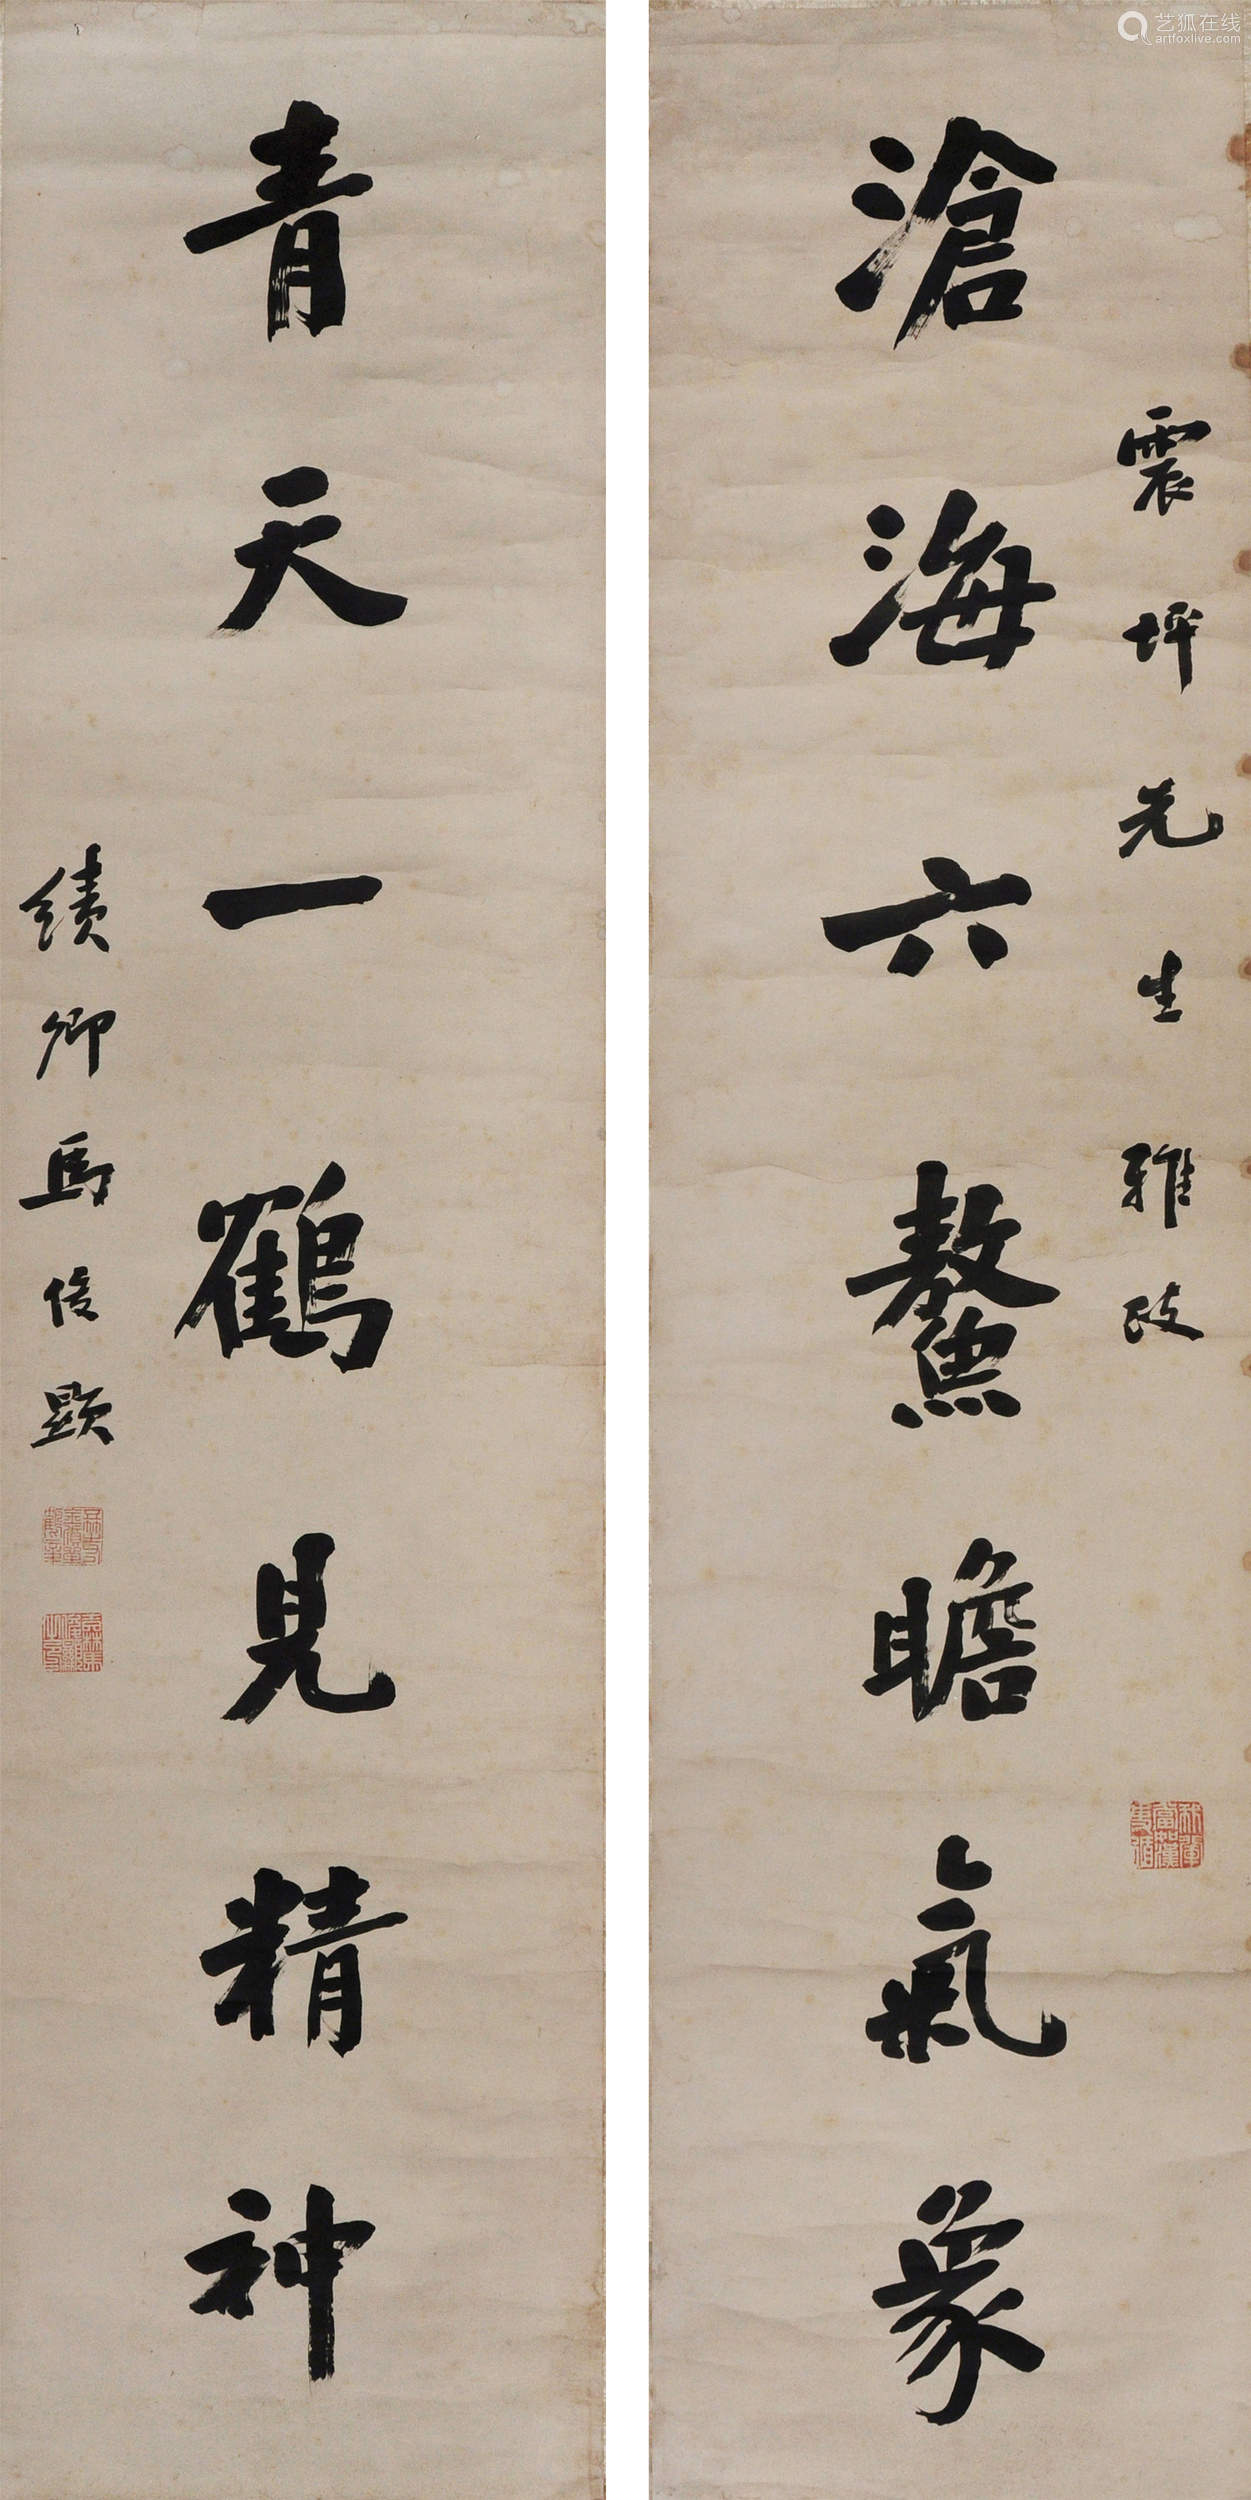 艺狐在线
artfoxlive.com
震坪先生雅政
滄海六鰲瞻氣象
青天一鶴見精神
績卿馬俊顯